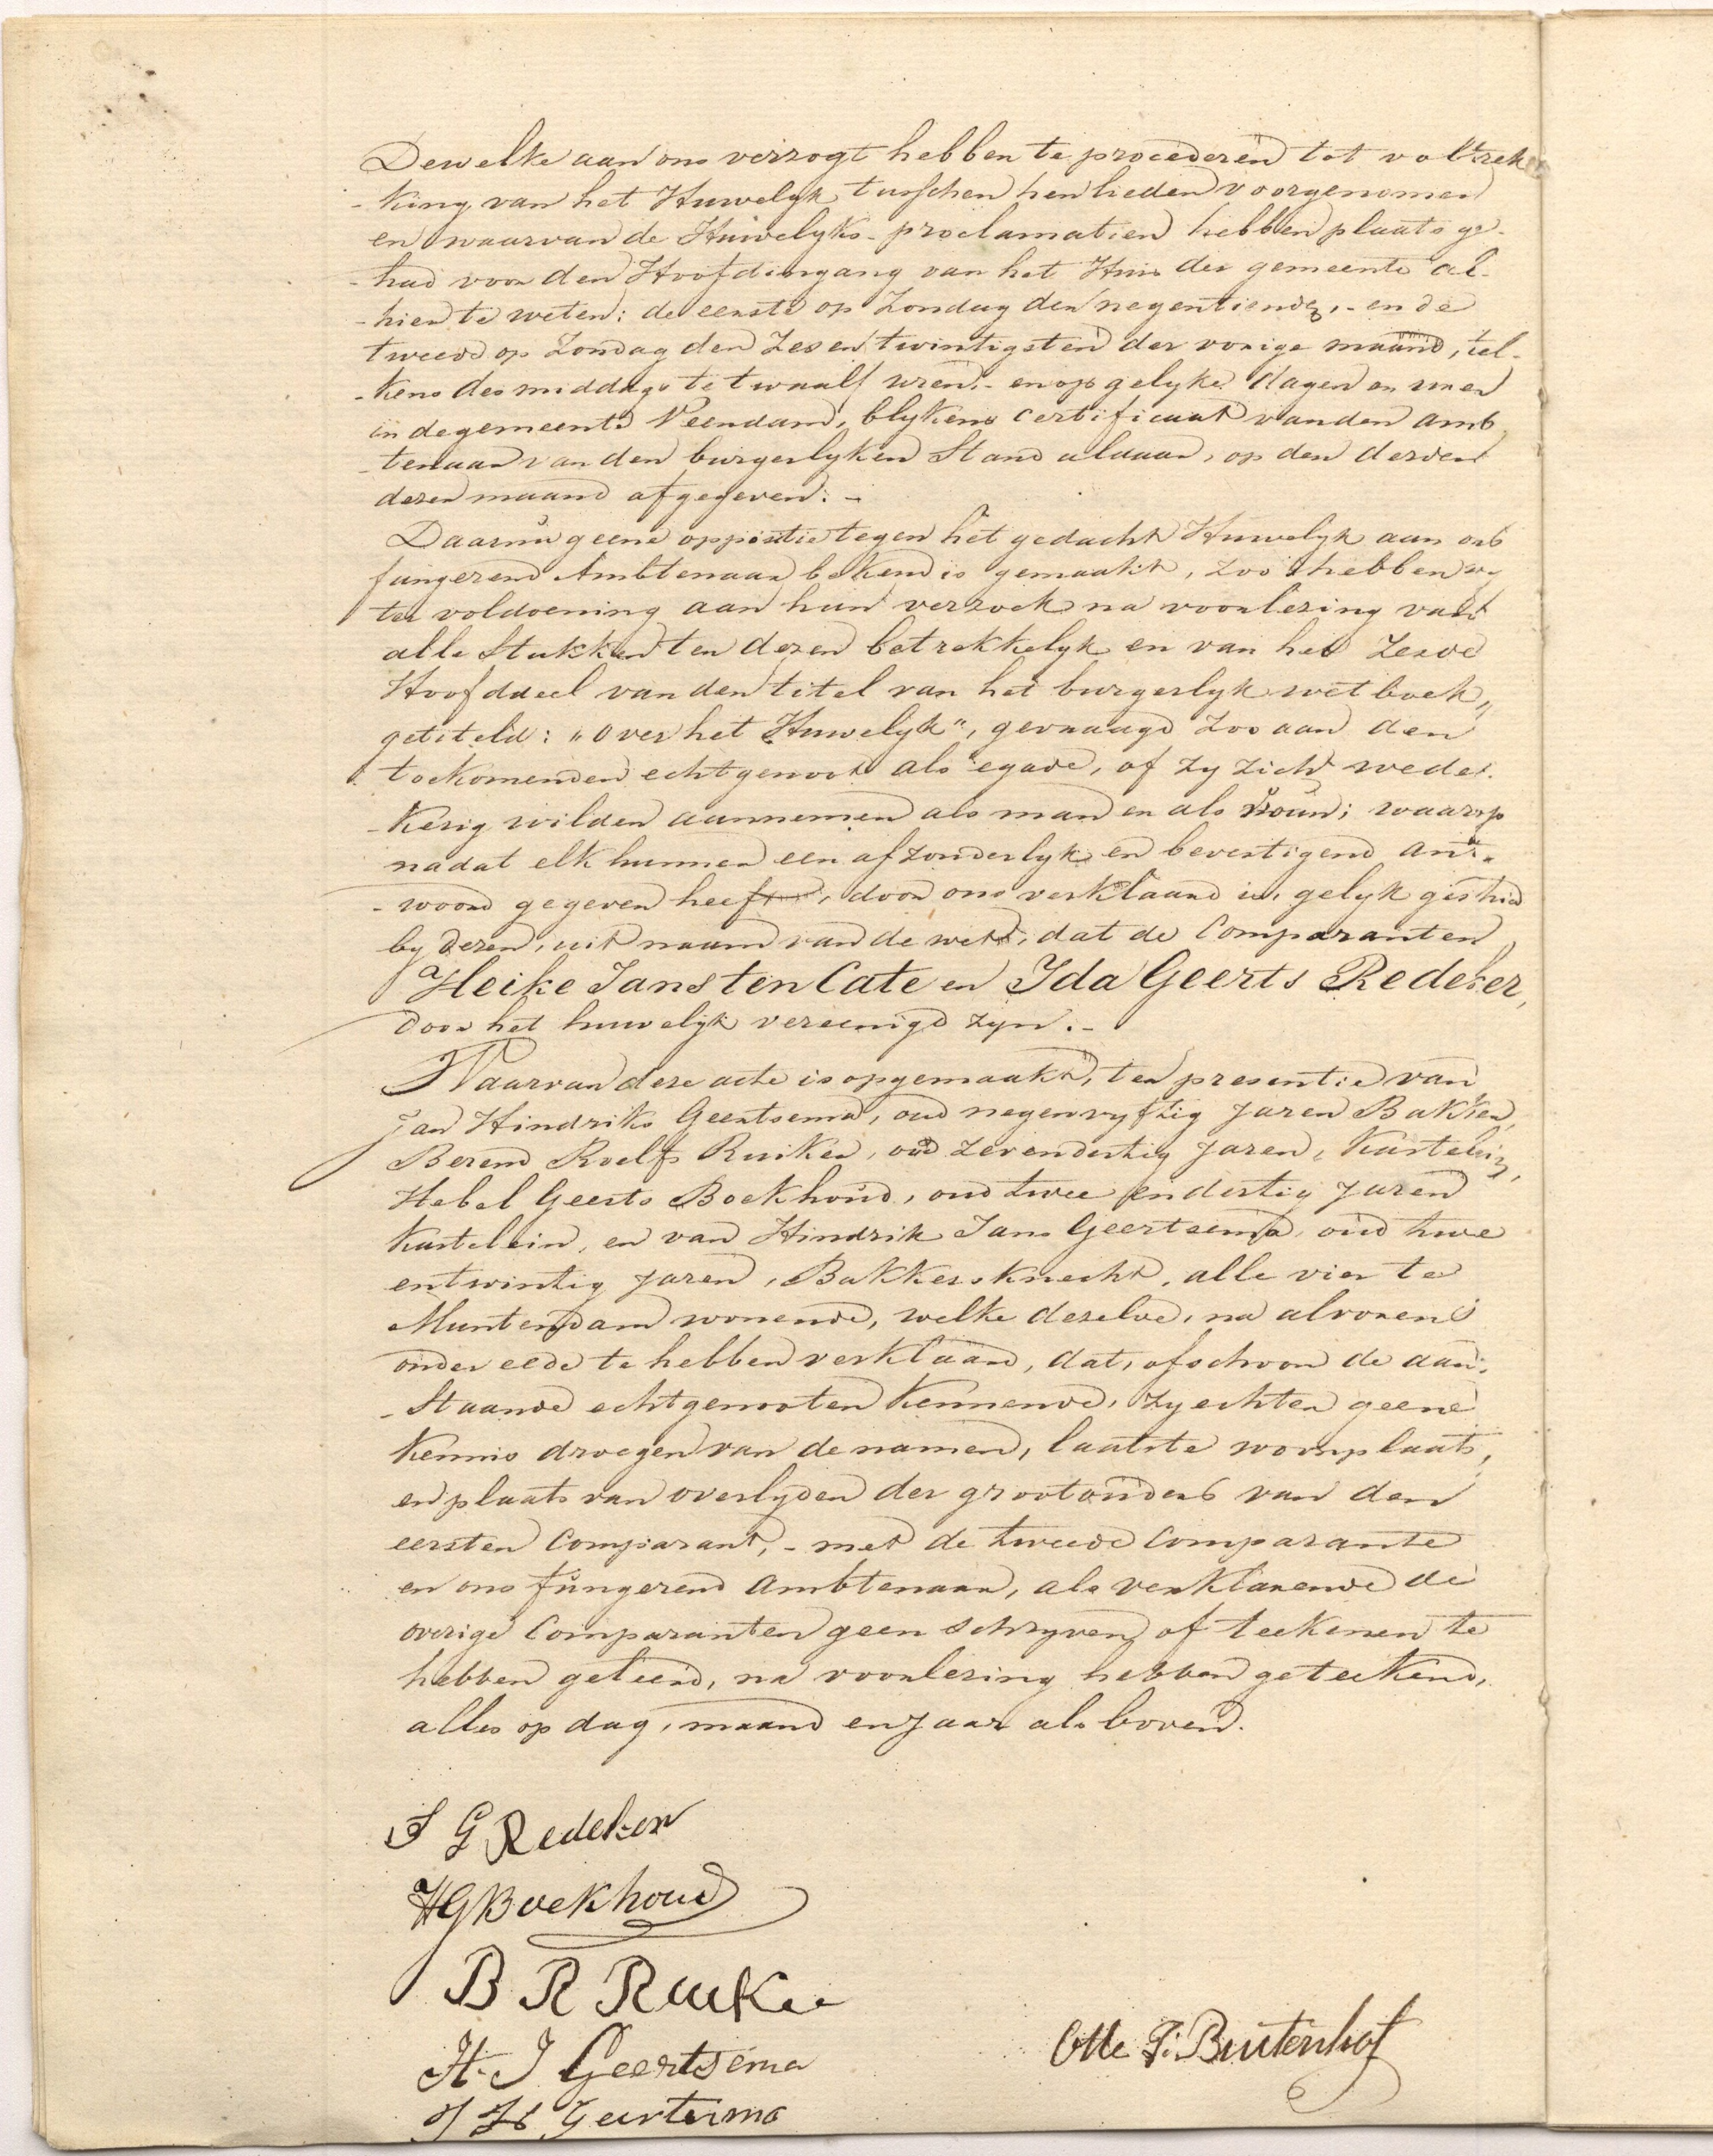 Dewelke aan ons verzogt hebben te procederen tot voltrek
-king van het Huwelyk tusschen henlieden voorgenomen
en waarvan de Huwelyks-proclamatien hebben plaats ge-
-had voor den Hoofdingang van het Huis der gemeente al-
-hier te weten: de eerste op Zondag den negentiende, - en de
tweede op Zondag den Zes en twintigsten der vorige maand, tel-
-kens des middags te twaalf uren, - en op gelyke dagen en uren
in de gemeente Veendam, blykens certificaat van den amb
-tenaar van den burgerlyken Stand aldaar, op den derden
dezer maand afgegeven: -
Daar nu geene oppositie tegen het gedacht Huwelyk aan ons
fungerend Ambtenaar bekend is gemaakt, zoo hebben wy
ter voldoening aan hun verzoek na voorlezing van
alle Stukken ten dezen betrekkelyk en van het Zesde
Hoofddeel van den titel van het burgerlyk wetboek,
getiteld: "over het Huwelyk", gevraagd Zoo aan den
toekomenden echtgenoot als egade, of zy zich weder-
-kerig wilden aannemen als man en als vrouw; waarop
nadat elk hunner een afzonderlyk en bevestigend ant-
-woord gegeven heeft, door ons verklaard is, gelyk geschied
by dezen, uit naam van de wet, dat de Comparanten
Heike Jans ten Cate en Ida Geerts Redeker,
door het huwelyk vereenigd zyn. -
Waarvan deze acte is opgemaakt, ter presentie van
Jan Hindriks Geertsema, oud negenvyftig Jaren Bakker,
Berend Roelfs Ruiker, oud zevendertig Jaren, Kastelein,
Hebel Geerts Boekhoud, oud twee en dertig Jaren
Kastelein, en van Hindrik Jans Geertsema, oud twee
entwintig Jaren, Bakkersknecht, alle vier te
Muntendam wonende, welke dezelve, na alvorens
onder eede te hebben verklaard, dat, ofschoon de aan-
-Staande echtgenooten kennende, zy echter geene
kennis droegen van de namen, laatste woonplaats,
en plaats van overlyden der grootouders van den
eersten Comparant, - met de tweede Comparante
en ons fungerend Ambtenaar, als verklarende de
overige Comparanten geen schryven of teekenen te
hebben geleerd, na voorlezing hebben geteekend,
alles op dag, maand en Jaar als boven.
I G Redeker
HG Boekhoud
B R Ruiker
H. J Geertsema
Otte F: Buitenhof
J H Geertsema